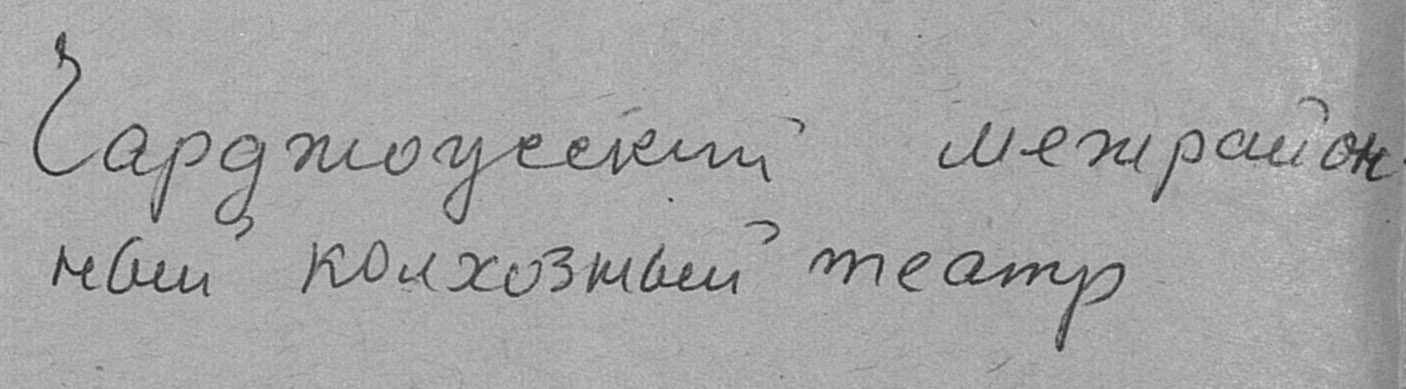 Чарджоусский межрайон-
ный колхозный театр